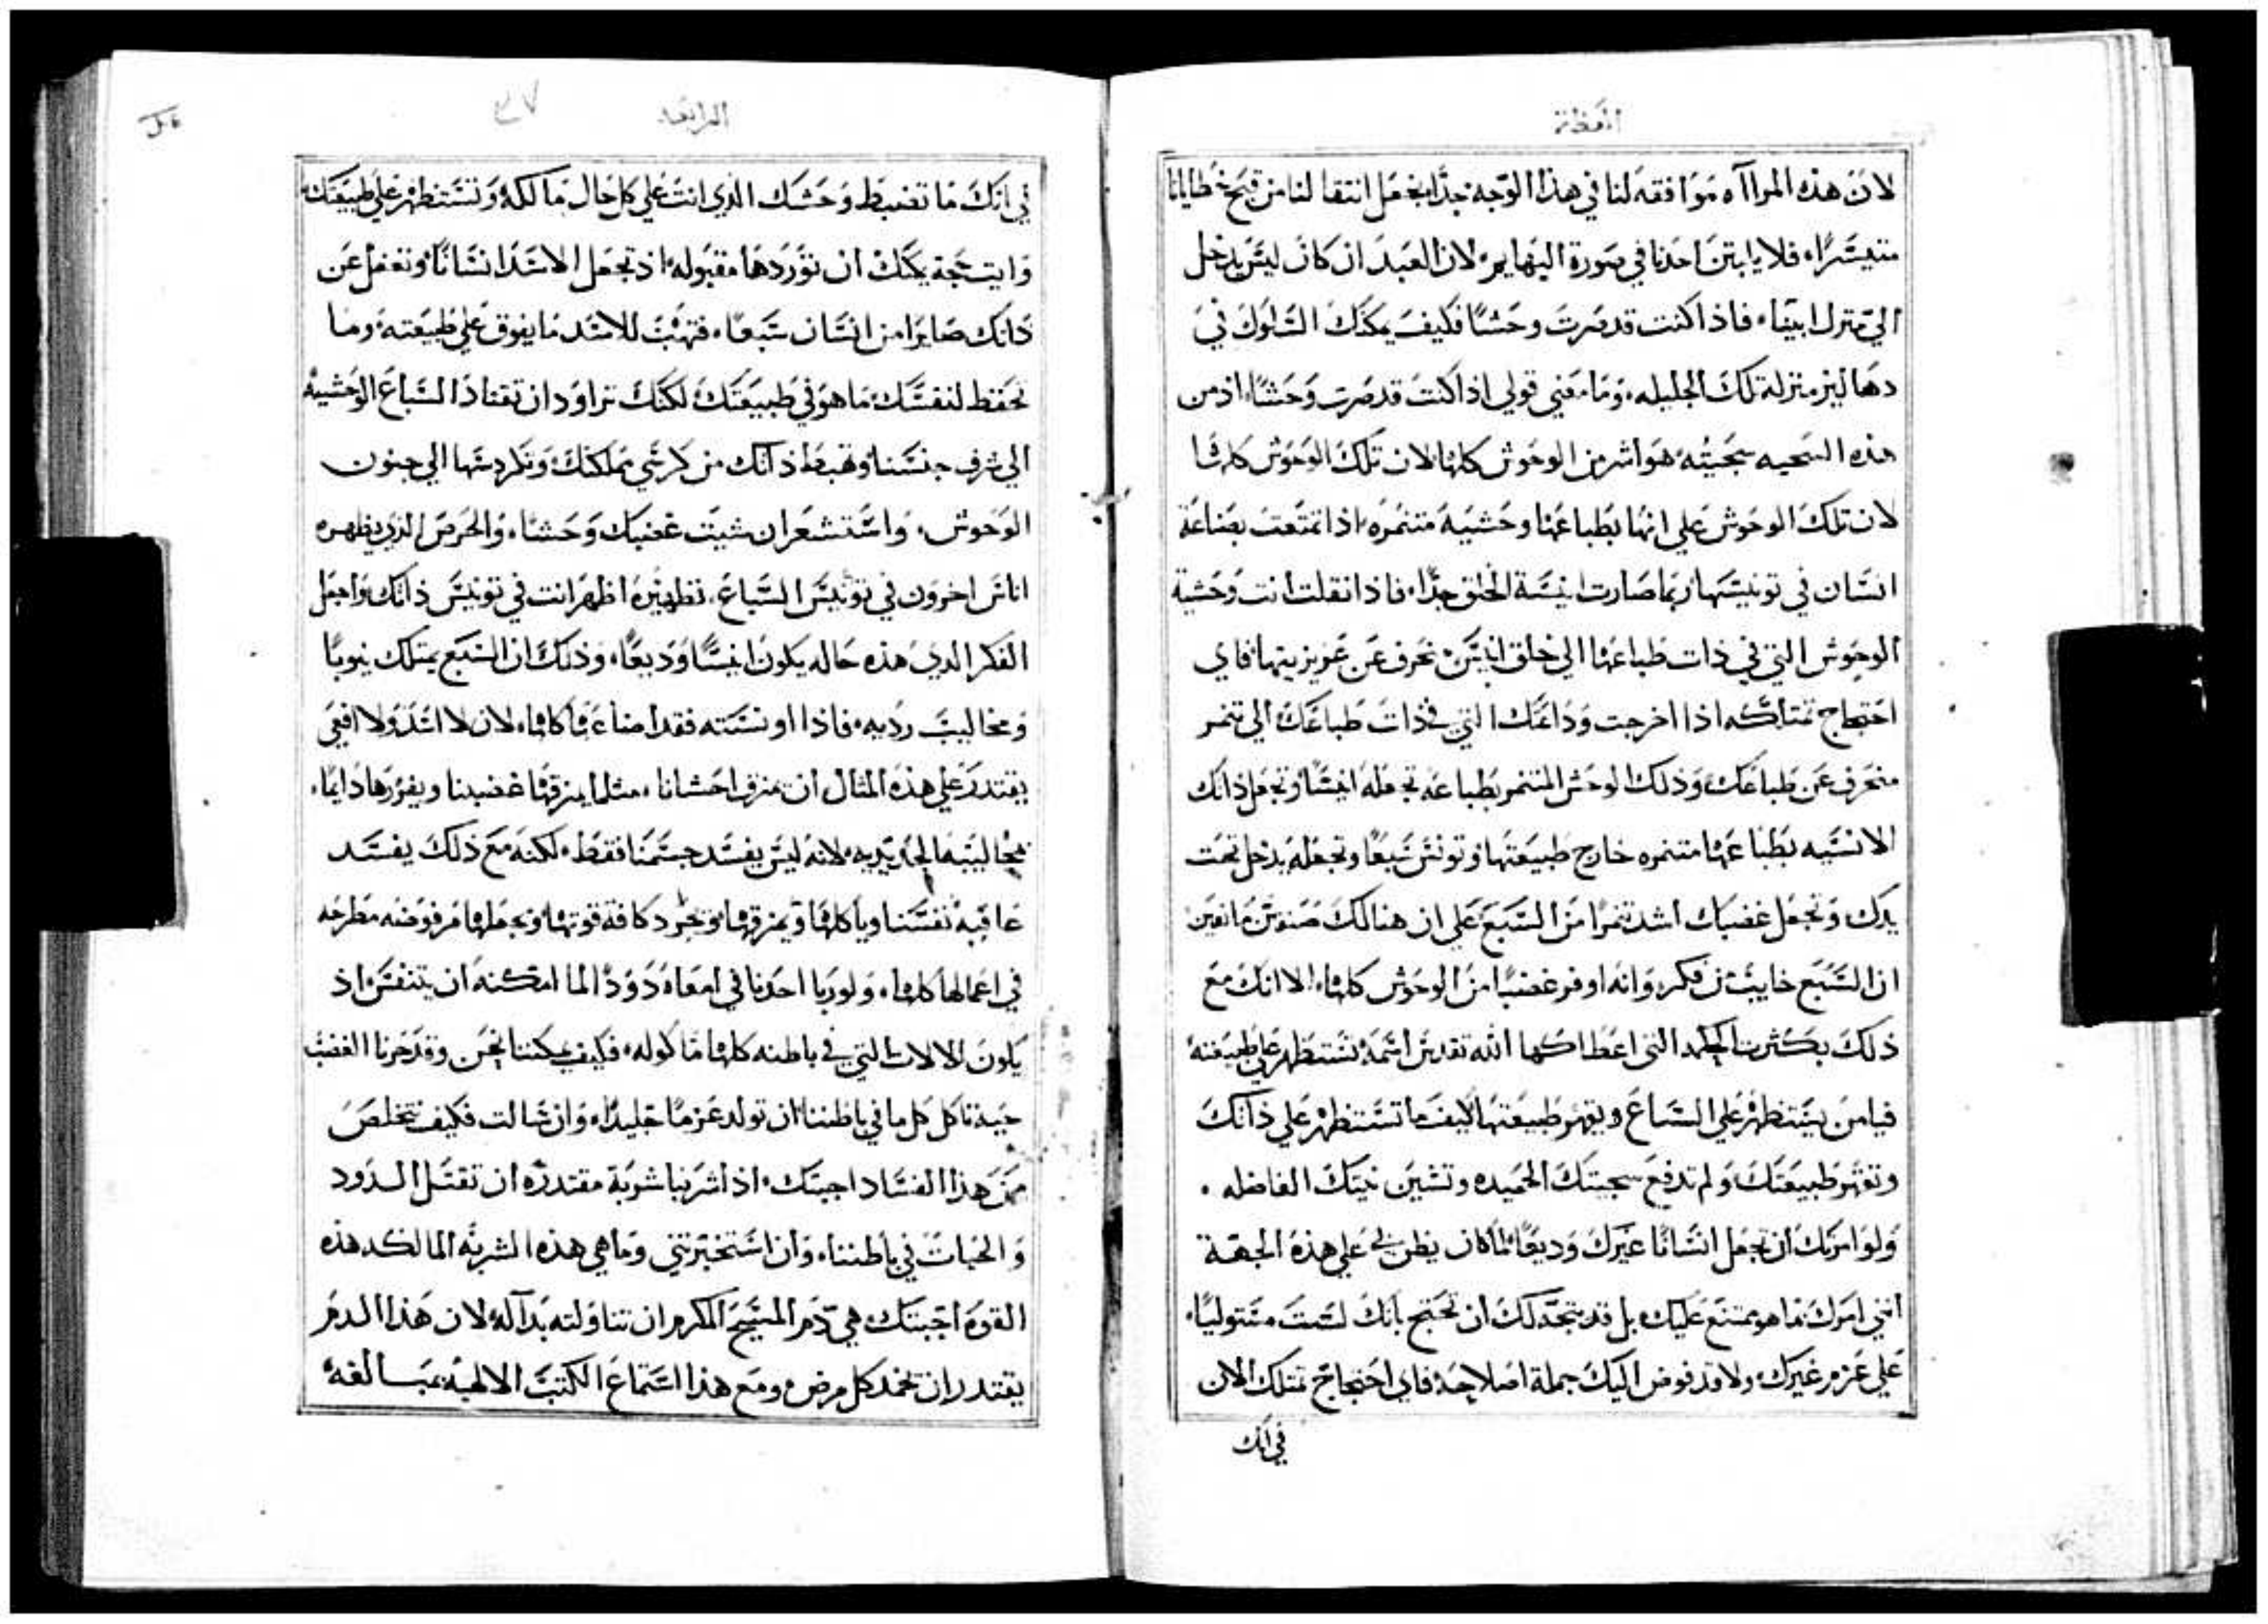 العظة
لان هذه المراآه موافقه لنا في هذا الوجه جدًا بجعل انتقالنا من قبح خطايانا
متيسرًا، فلا يابتن احدنا في صورة البهايم، لان العبد ان كان ليس يدخل
الي منزل ابينا، فاذا كنت قد صرت وحشًا فكيف يمكنك السلوك في
دهاليز منزلة تلك الجليله، وما معني قولي اذا كنت قد صرت وحشًا، اذ من
هذه السجيه سجيته هو اشر من الوحوش كلها لان تلك الوحوش كلها
لان تلك الوحوش علي انها بطباعها وحشية متنمره، اذا تمتعت بصناعة
انسان في تونيسها ربما صارت انيسة الخلق جدًا، فاذا نقلت انت وحشية
الوحوش التي في ذات طباعها الي خلق انيس، تحرف عن غريزيتها، فاي
احتجاج تمتلكه اذا اخرجت وداعتك التي في ذات طباعك الي تنمر
منحرف عن طباعك، وذلك الوحش المتنمر بطباعه تجعله انيسًا، وتجعل ذاتك
الانسيه بطباعها متنمره خارج طبيعتها، وتونس سبعًا وتجعله يدخل تحت
يدك وتجعل غضبك اشد تنمرًا من السبع علي ان هنالك صنوين مانعين
ان السبع خايب من فكر، وانه اوفر غضبًا من الوحوش كلها، الا انك مع
ذلك بكثرت الحكمه التي اعطاكها الله تقدس اسمه تستظهر علي طبيعته
فيا من يستظهر علي السباع ويقهر طبيعتها كيف ما تستظهر علي ذاتك
وتقهر طبيعتك ولم تدفع سجيتك الحميده وتشين نيتك الفاضله.
ولو امرتك ان تجعل انسانًا غيرك وديعًا لما كان يظن بي علي هذه الجهة
انني امرك بما هو ممتنع عليك، بل قد يتجه لك ان تحتج بانك لست متوليًا
علي عزم غيرك، ولا قد فوض اليك جملة اصلاحه، فاي احتجاج تمتلك الان
في انك
الرابعه
في انك ما تضبط وحشك الذي انت علي كل حال مالكه، وتستظهر علي طبيعتك
وايت حجة يمكنك ان توردها مقبوله، اذ تجعل الاسد انسانًا، وتغفل عن
ذاتك صايرًا من انسان سبعًا، فتهب للاسد ما يفوق علي طبيعته، وما
تحفظ لنفسك ما هو في طبيعتك، لكنك تراود ان تقتاد السباع الوحشيه
الي شرف جنسنا، وتهبط ذاتك من كرسي مملكتك وتكردسها الي جنون
الوحوش، واستشعر ان شيت غضبك وحشًا، والحرص الذي يظهره
اناس اخرون في تونيس السباع، نظيره اظهر انت في تونيس ذاتك، واجعل
الفكر الذي هذه حاله يكون انيسًا وديعًا، وذلك ان السبع يمتلك نيوبًا
ومخاليب رديه، فاذا اونسته فقد اضاعها كلها، لان لا اسد ولا افعي
يقتدر علي هذه المثال ان يمزق احشانا، مثلما يمزقها غضبنا ويغورها دايمًا،
بمخاليبه الحديديه، لانه ليس يفسد جسمنا فقط، لكنه مع ذلك يفسد
عافية نفسنا وياكلها ويمزقها، ويجرد كافة قوتها، ويجعلها مرفوضه مطرحه
في اعمالها كلها، ولو ربا احدنا في امعاه دودًا لما امكنه ان يتنفس، اذ
يكون الالات التي في باطنه كلها ماكوله، فكيف يمكننا نحن وقد حزنا الغضب
حية تاكل كل ما في باطننا ان تولد عزمًا جليلًا، وان سالت فكيف نتخلص
من هذا الفساد اجبتك، اذا شربنا شربة مقتدره ان تقتل الدود
والحيات في باطننا، وان استخبرتني وما هي هذه الشربه المالكه هذه
القوه اجبتك هي دم المسيح المكرم ان تناولته بداله، لان هذا الدم
يقتدر ان يخمد كل مرض، ومع هذا استماع الكتب الالهيه بمبالغه